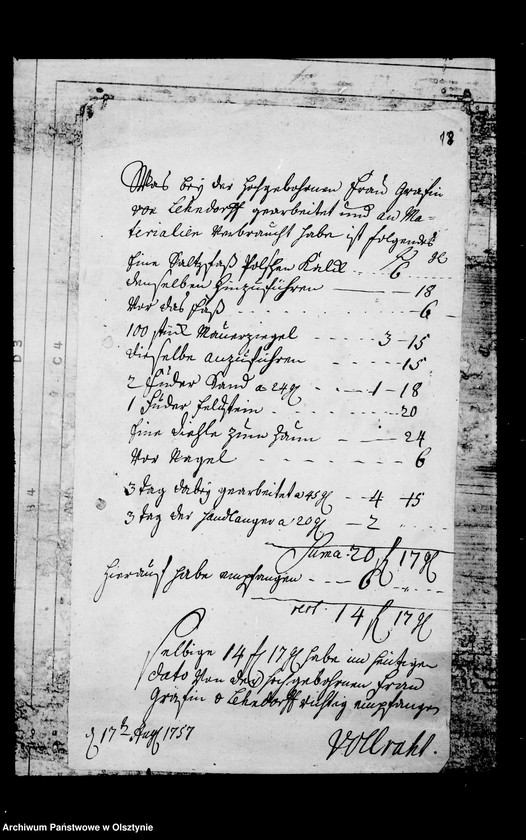 13
Was bey der Hochgebohrnen Frau Gräfin
von Lehndorff gearbeitet und an Ma-
terialien verbraucht habe ist folgendes
fl gl
Eine Saltztaß Kalck 6
denselben hinzuführen 18
Vor das Faß 6
100 stück Mauerziegel 3 - 15
dieselbe anzuführen 15
2 Fuder Sand a 24 gl 1 - 18
1 Fuder Feldstein 20
Eine Diehle zum Zaun 24
Vor Nägel 6
3 Tag dabey gearbeitet a 45 gl 4 - 15
3 Tag der Handlanger a 20 gl 2
Suma 20 fl 17 gl
Hierauf habe empfangen 6
rest. 14 fl 17 gl
Selbige 14 fl 17 gl habe im heutigen
dato von der Hochgebohrnen Frau
Gräfin v Lehndorff richtig empfangen
d 17t Aug 1757
Vollraht.
D 3
C 4
B 4
Archiwum Państwowe w Olsztynie